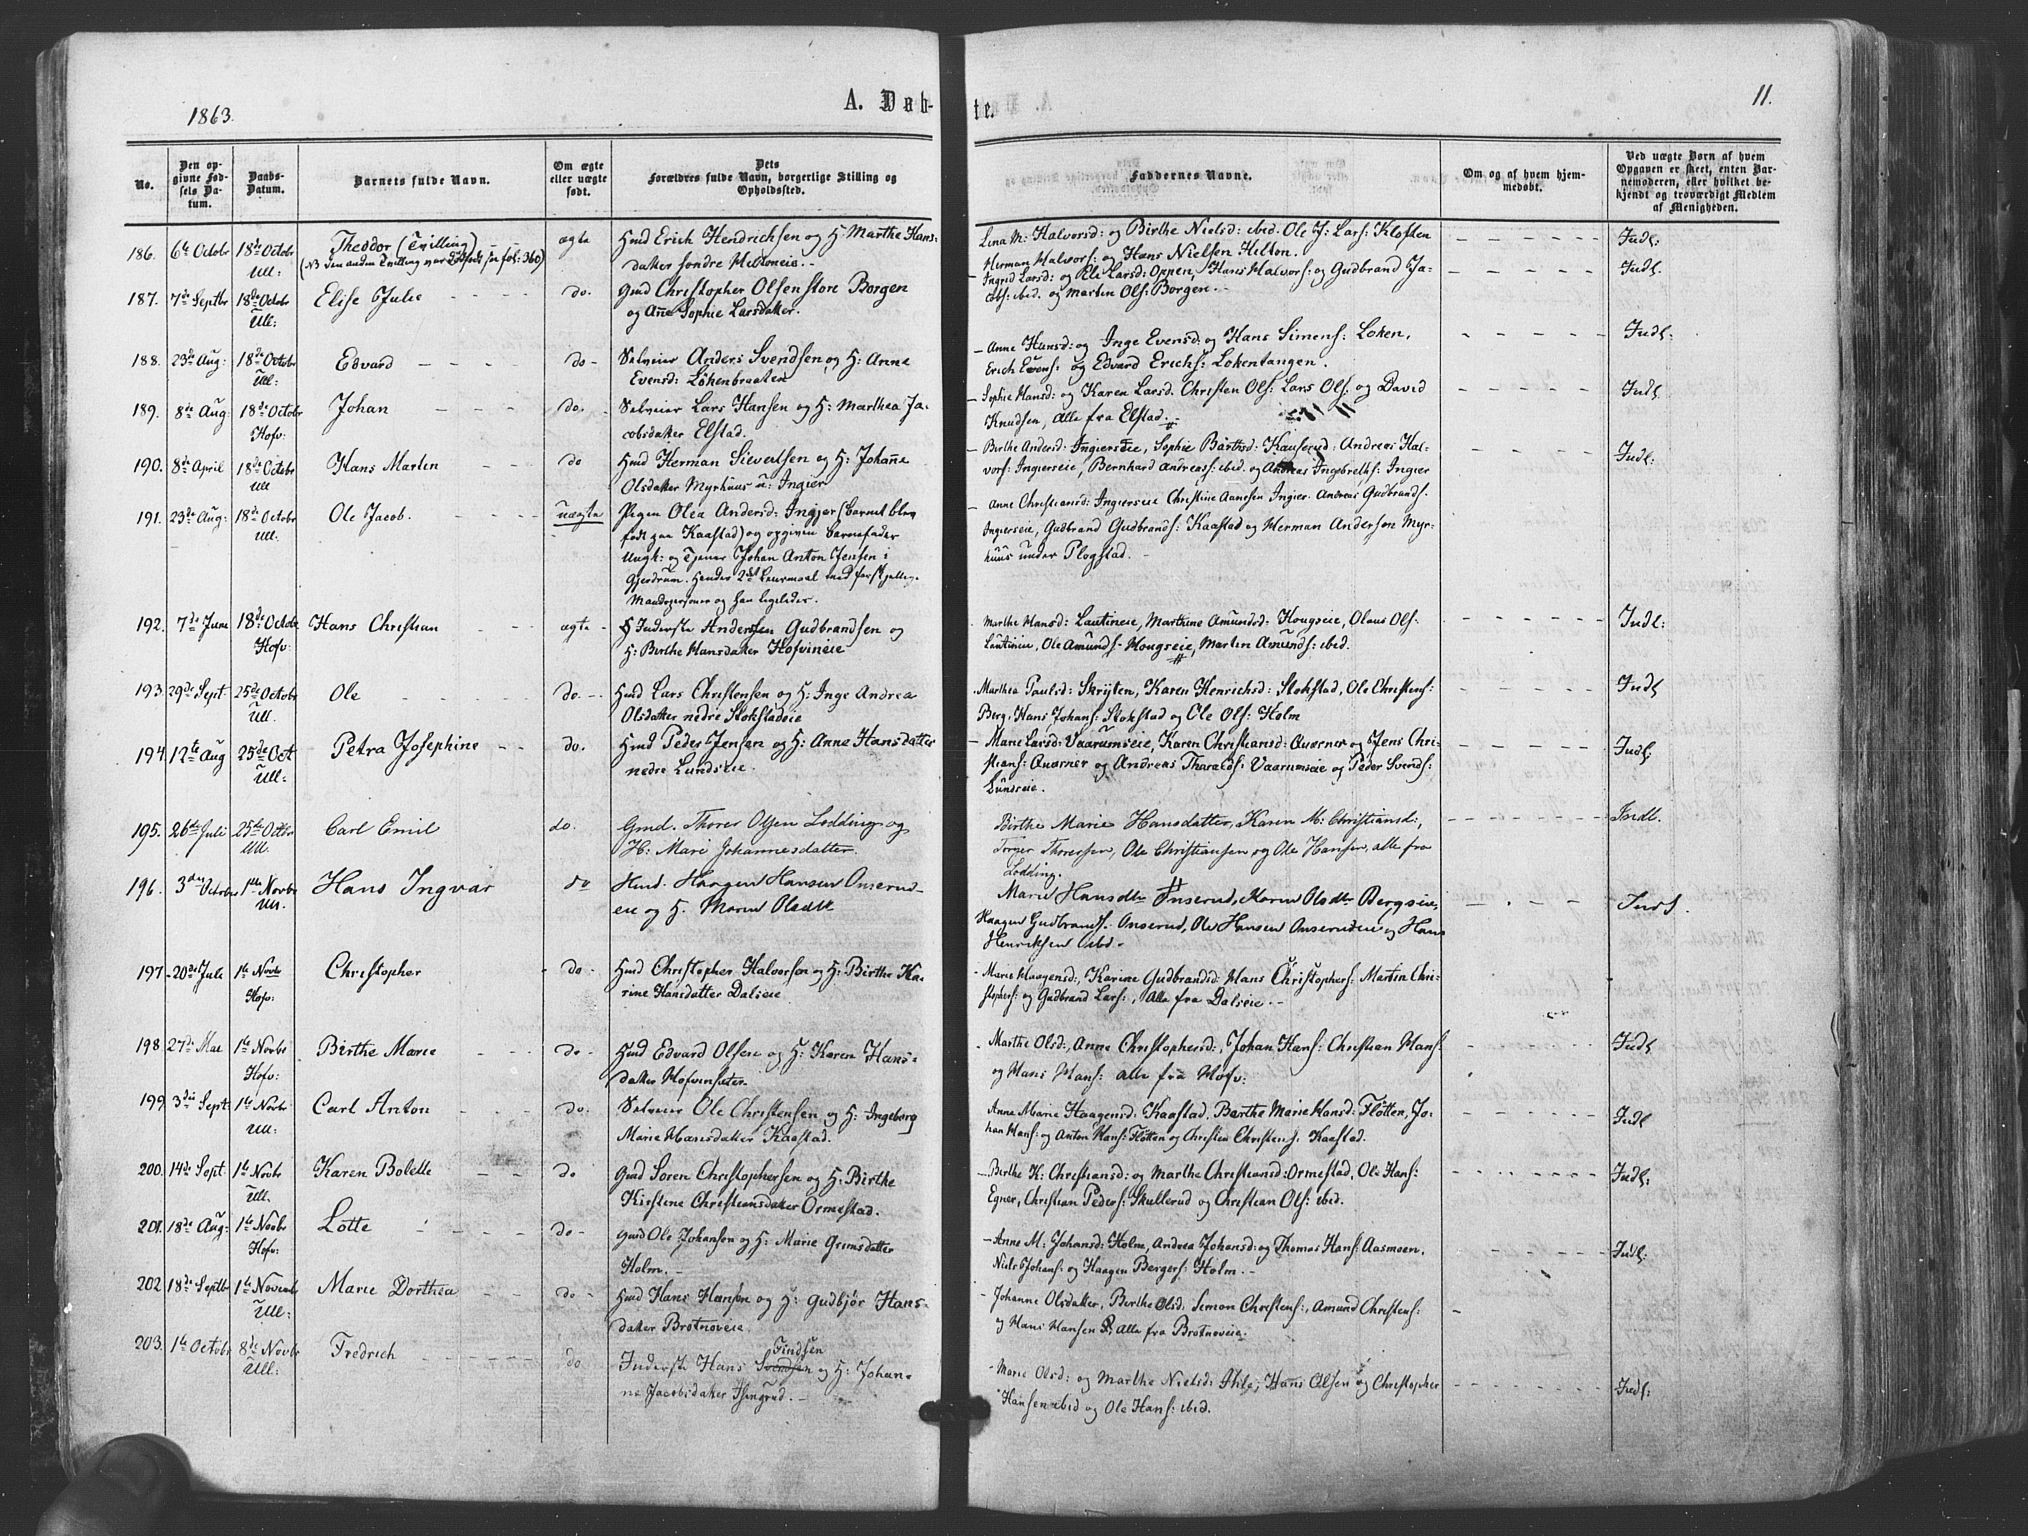 1863.
A. Døb-
te.
11.
No.
Den op-
givne Fød-
sels Da-
tum.
Daabs-
Datum.
Barnets fulde Navn.
Om ægte
eller uægte
født.
Dets
Forældres fulde Navn, borgerlige Stilling og
Opholdssted.
Faddernes Navne.
Om og af hvem hjem-
medøbt.
Ved uægte Børn af hvem
Opgaven er skeet, enten Bar-
nemoderen, eller hvilket be-
kjendt og troværdigt Medlem
af Menigheden.
186. 6te Octobr 18de Octobr Ull: Theodor (Tvilling) ægte Hmd Erich Hendrichsen og H: Marthe Hans-
datter søndre Hiltoneie. -
(NB den anden Tvilling var dødfødt, see fol: 360)
Lina M: Halvorsd: og Birthe Nielsd: ibid. Ole J: Lars: Kloften
Herman Halvors: og Hans Nielsen Hilton. Indl:
187. 7de Septbr 18de Octobr Ull: Elise Julie do. Gmd Christopher Olsen store Borgen
og Anne Sophie Larsdatter.
Ingrid Larsd: og Pli Larsd: Oppen, Hans Halvors: og Gudbrand Ja-
cobs: ibid. og Martin Ols: Borgen. - Indl.
188. 23de Aug: 18de Octobr Ull: Edvard do - Selveier Anders Svendsen og H: Anne
Evensd: Løkenbraaten
Anne Hansd: og Inge Evensd: og Hans Simens: Løken,
Erich Evens: og Edvard Erichs: Løkentangen. Indl:
189. 8de Aug 18de Octobr Hofv: Johan do. Selveier Lars Hansen og H: Marthea Ja-
cobsdatter Elstad.
Sophie Hansd: og Karen Larsd. Christen Ols: Lars Ols: og David
Knudsen, Alle fra Elstad. - Indl
190. 8de April 18de Octobr Ull Hans Martin do Hmd Herman Sievertsen og H: Johanne
Olsdatter Myrhuus u: Ingier
Birthe Andersd: Ingierseie, Sophie Bårthsd: Kauserud: Andreas Hal-
vors: Ingierseie, Bernhard Andreas: ibid. og Andreas Ingebrets: Ingier Indl:
191. 23de Aug: 18de Octobr Ull. Ole Jacob. uægte Pigen Olea Andersd: Ingier (Barnet blev
født paa Kaastad) og opgiven Barnefader
Ungk: og Tjener Johan Anton Jensen i
Gjerdrum. Hendes 2det Leiermaal med forskjellige
Mandspersoner og han ligeledes.
Anne Christiansd: Ingierseie Christine Aannsen Ingier. Andreas Gudbrands:
Ingierseie, Gudbrand Gudbrands: Kaastad og Herman Andersen Myr-
huus under Plogstad. -
192. 7de June 18de Octobr Hofv: Hans Christian ægte - Inderste Andersen Gudbrandsen og
H: Birthe Hansdatter Hofvineie
Marthe Hansd: Lautineie, Marthine Amundsd: Hougseie, Olaus Ols:
Lautineie, Ole Amunds- Hougseie, Martin Amunds: ibid. Indl:
193. 29de Sept. 25de Octobr Ull. Ole do. - Hmd Lars Christensen og H: Inge Andrea
Olsdatter nedre Stokstadeie
Marthea Paulsd: Skrijten, Karen Henrichsd: Stokstad, Ole Christens:
Berg, Hans Johans: Stokstad og Ole Ols: Holm Indl
194. 12te Aug 25de Oct Ull: Petra Josephine do. Hmd Peder Jensen og H: Anne Hansdatter
nedre Lundseie.
Marie Larsd: Vaarumseie, Karen Christiansd: Quærner og Jens Chri-
stians: Quærner og Andreas Tharalds: Vaarumseie og Peder Svends:
Lundseie. Indl:
195. 26de Juli 25de Octbr Ull. Carl Emil do. Gmd. Thorer Olsen Lodding og
H: Mari Johannesdatter.
Birthe Marie Hansdatter, Karen M: Christiansd:,
Torger Thoressen, Ole Christiansen og Ole Hansen, alle fra
Lodding. Indl.
196. 3die Octobr 1ste Novbr Ull. Hans Ingvar do Hmd. Haagen Hansen Onserud-
eie og H. Maren Olsdtr
Marie Hansdtr Onserud, Karen Olsdtr Bergseie,
Haagen Gudbrands. Onserud, Ole Hansen Onserudeie og Hans
Henriksen ibid. - Indl.
197. 20de Juli 1te Novbr Hofv: Christopher do. Hmd Christopher Halvorsen og H: Birthe Ka-
rine Hansdatter Dalseie
Marie Haagensd:, Karine Gudbrandsd: Hans Christophers: Martin Chri-
stophers: og Gudbrand Lars:, Alle fra Dalseie. -
198. 27de Mai 1te Novbr Hofv: Birthe Marie do - Hmd Edvard Olsen og H: Karen Hans-
datter Hofvinsæter.
Marthe Olsd:, Anne Christophersd:, Johan Hans: Christian Hans:
og Hans Hans: alle fra Hofv: Indl
199. 3die Sept: 1te Novbr Ull: Carl Anton do. Selveier Ole Christensen og H: Ingeborg
Marie Hansdatter Kaastad.
Anne Marie Haagensd: Kaastad. Berthe Marie Hansd: Fløtten, Jo-
han Hans: og Anton Hans: Fløtten og Christen Christens: Kaastad. Indl
200. 14de Sept: 1te Novbr Ull. Karen Bolette do Gmd Søren Christophersen og H: Birthe
Kirstine Christiansdatter Ormestad.
Birthe K: Christiansd: og Marthe Christiansd: Ormestad, Ole Hans:
Egner, Christian Peders: Skullerud og Christian Ols: ibid. Indl:
201. 18de Aug: 1te Novbr Hofv: Lotte do - Gmd Ole Johansen og H: Marie Grimsdatter
Holm. -
Anne M: Johansd: Holm, Andrea Johansd: og Thomas Hans: Aasmoen,
Niels Johans: og Haagen Bergers: Holm. - Indl:
202 18de Septbr 1te Novembr Ull: Marie Dorthea do - Hmd Hans Hansen og H: Gudbjør Hans-
datter Brotnoveie.
Johanne Olsdatter, Berthe Olsd: Simon Christens:, Amund Christens:
og Hans Hansen, Alle fra Brotnoveie.
203. 1te Octobr 8de Novbr Ull: Fredrich do Inderste Hans Svendsen Findsen og H: Johan-
ne Jacobsdatter Isingrud. -
Marie Olsd: og Marthe Nielsd: Ihle, Hans Olsen og Christopher
Hansen ibid og Ole Hans: ibid. Indl: